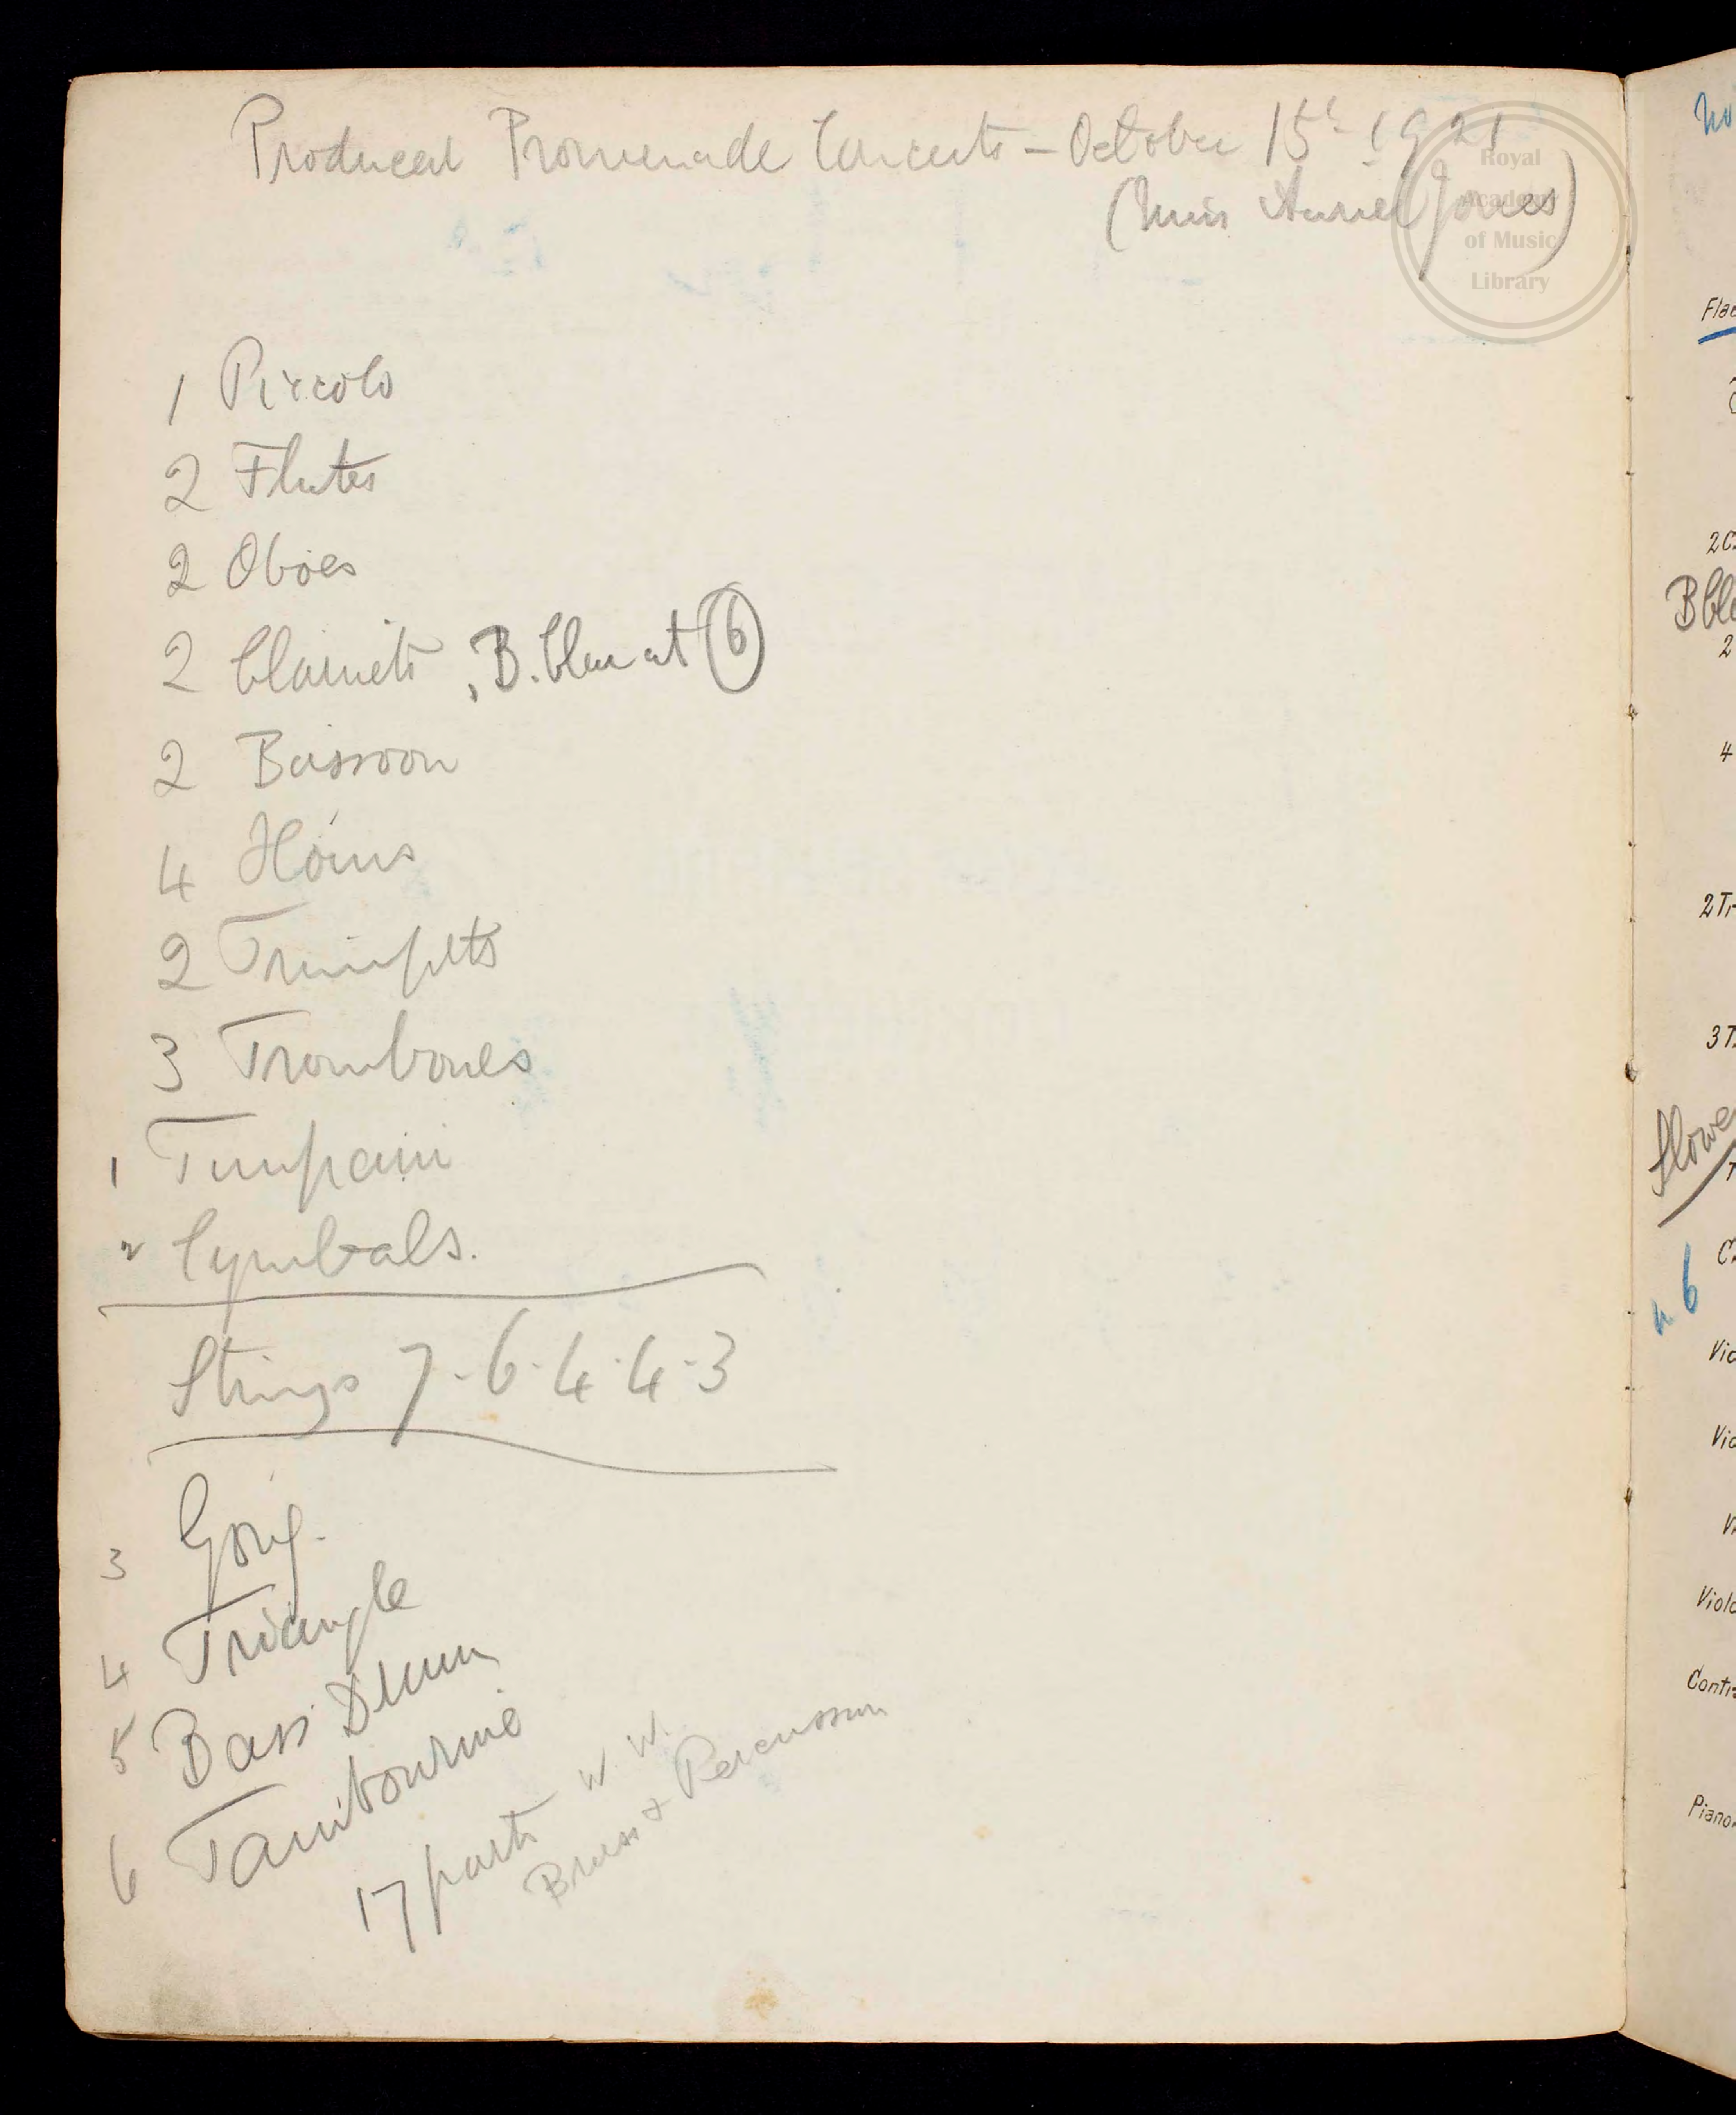 Produced Promenade Concerts – October 15th 1921
(Miss Auriel Jones)
Royal
Academy
of Music
Library
1 Piccolo
2 Flutes
2 Oboes
2 Clarinets, B. Clar at 6
2 Bassoon
4 Horns
2 Trumpets
3 Trombones
1 Timpani
2 Cymbals.
Strings 7·6·4·4·3
3 Gong.
4 Triangle
5 Bass Drum
6 Tambourine
17 parts W W.
Brass + Percussion
2
4
2 Tr
3 T
6